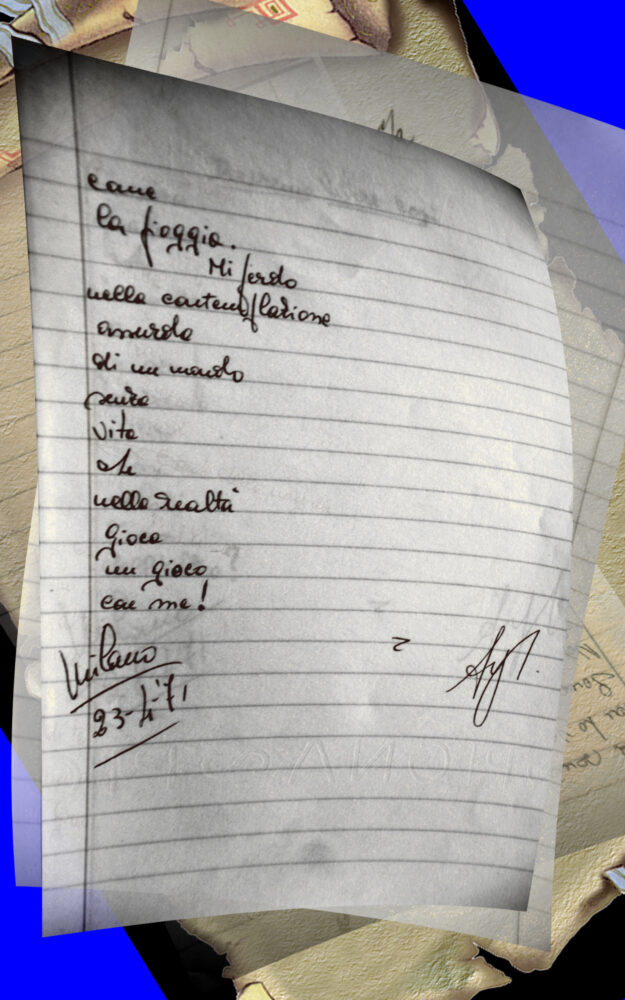 come
la pioggia.
Mi perdo
nella contemplazione
assurda
di un mondo
senza
vita
che
nella realtà
gioca
un gioco
con me!
Milano
23-4-71